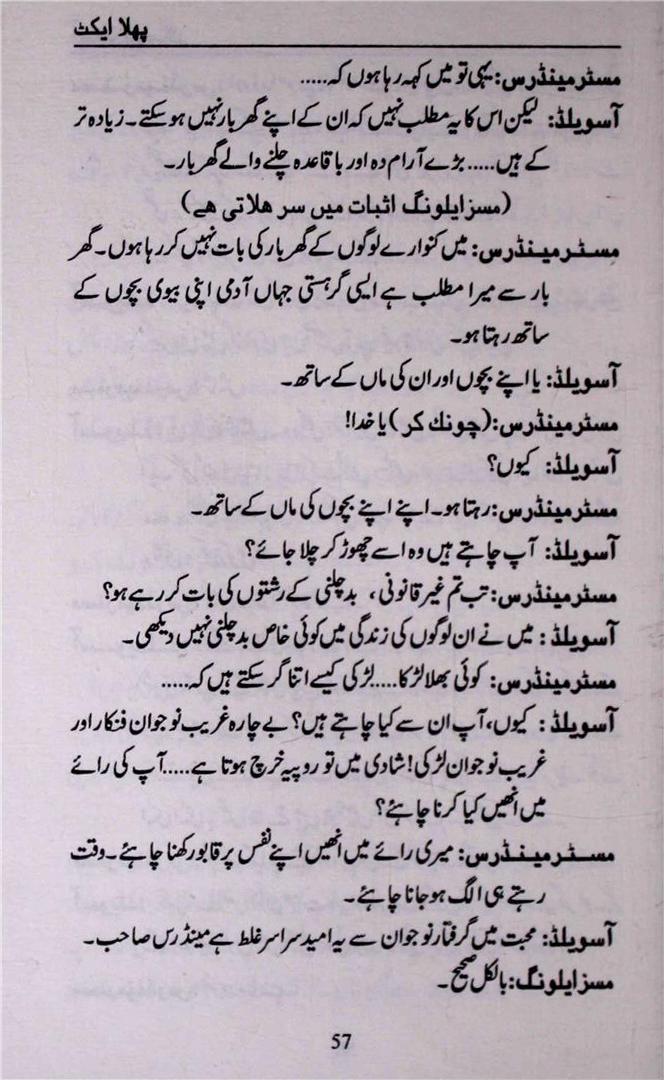 پہلا ایکٹ
مسٹر مینڈرس: یہی تو میں کہہ رہا ہوں کہ.....
آسویلڈ: لیکن اس کا یہ مطلب نہیں کہ ان کے اپنے گھر بار نہیں ہوسکتے۔ زیادہ تر
کے ہیں..... بڑے آرام دہ اور باقاعدہ چلنے والے گھر بار۔
(مسز ایلونگ اثبات میں سر ہلاتی ہے)
مسٹر مینڈرس: میں کنوارے لوگوں کے گھر بار کی بات نہیں کر رہا ہوں۔ گھر
بار سے میرا مطلب ہے ایسی گرہستی جہاں آدمی اپنی بیوی بچوں کے
ساتھ رہتا ہو۔
آسویلڈ: یا اپنے بچوں اور ان کی ماں کے ساتھ۔
مسٹر مینڈرس: (چونک کر) یا خدا!
آسویلڈ: کیوں؟
مسٹر مینڈرس: رہتا ہو۔ اپنے اپنے بچوں کی ماں کے ساتھ۔
آسویلڈ: آپ چاہتے ہیں وہ اسے چھوڑ کر چلا جائے؟
مسٹر مینڈرس: تب تم غیر قانونی، بدچلنی کے رشتوں کی بات کر رہے ہو؟
آسویلڈ: میں نے ان لوگوں کی زندگی میں کوئی خاص بدچلنی نہیں دیکھی۔
مسٹر مینڈرس: کوئی بھلا لڑکا.....لڑکی کیسے اتنا گر سکتے ہیں کہ.....
آسویلڈ: کیوں، آپ ان سے کیا چاہتے ہیں؟ بے چارہ غریب نوجوان فنکار اور
غریب نوجوان لڑکی! شادی میں تو روپیہ خرچ ہوتا ہے.....آپ کی رائے
میں انھیں کیا کرنا چاہئے؟
مسٹر مینڈرس: میری رائے میں انھیں اپنے نفس پر قابو رکھنا چاہئے۔ وقت
رہتے ہی الگ ہوجانا چاہئے۔
آسویلڈ: محبت میں گرفتار نوجوان سے یہ امید سراسر غلط ہے مینڈرس صاحب۔
مسز ایلونگ: بالکل صحیح۔
57